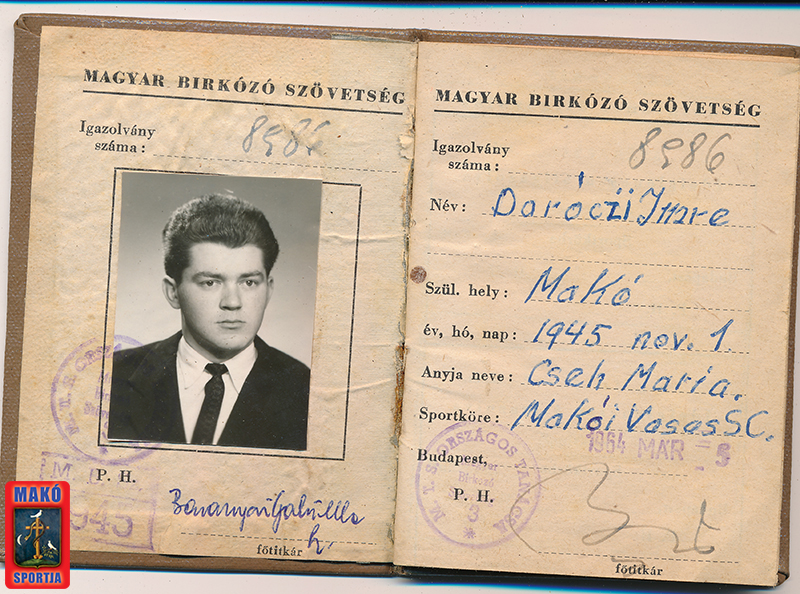 MAGYAR BIRKÓZÓ SZÖVETSÉG
Igazolvány
száma: 8986
P. H.
1945
főtitkár
MAKÓ
SPORTJA
MAGYAR BIRKÓZÓ SZÖVETSÉG
Igazolvány
száma: 8986
Név: Daróczi Imre
Szül. hely: Makó
év, hó, nap: 1945 nov. 1
Anyja neve: Cseh Maria.
Sportköre: Makói Vasas SC.
1964 MÁR 5
Budapest,
P. H.
M. T. S. ORSZÁGOS TANÁCSA
Birkózó
3
főtitkár